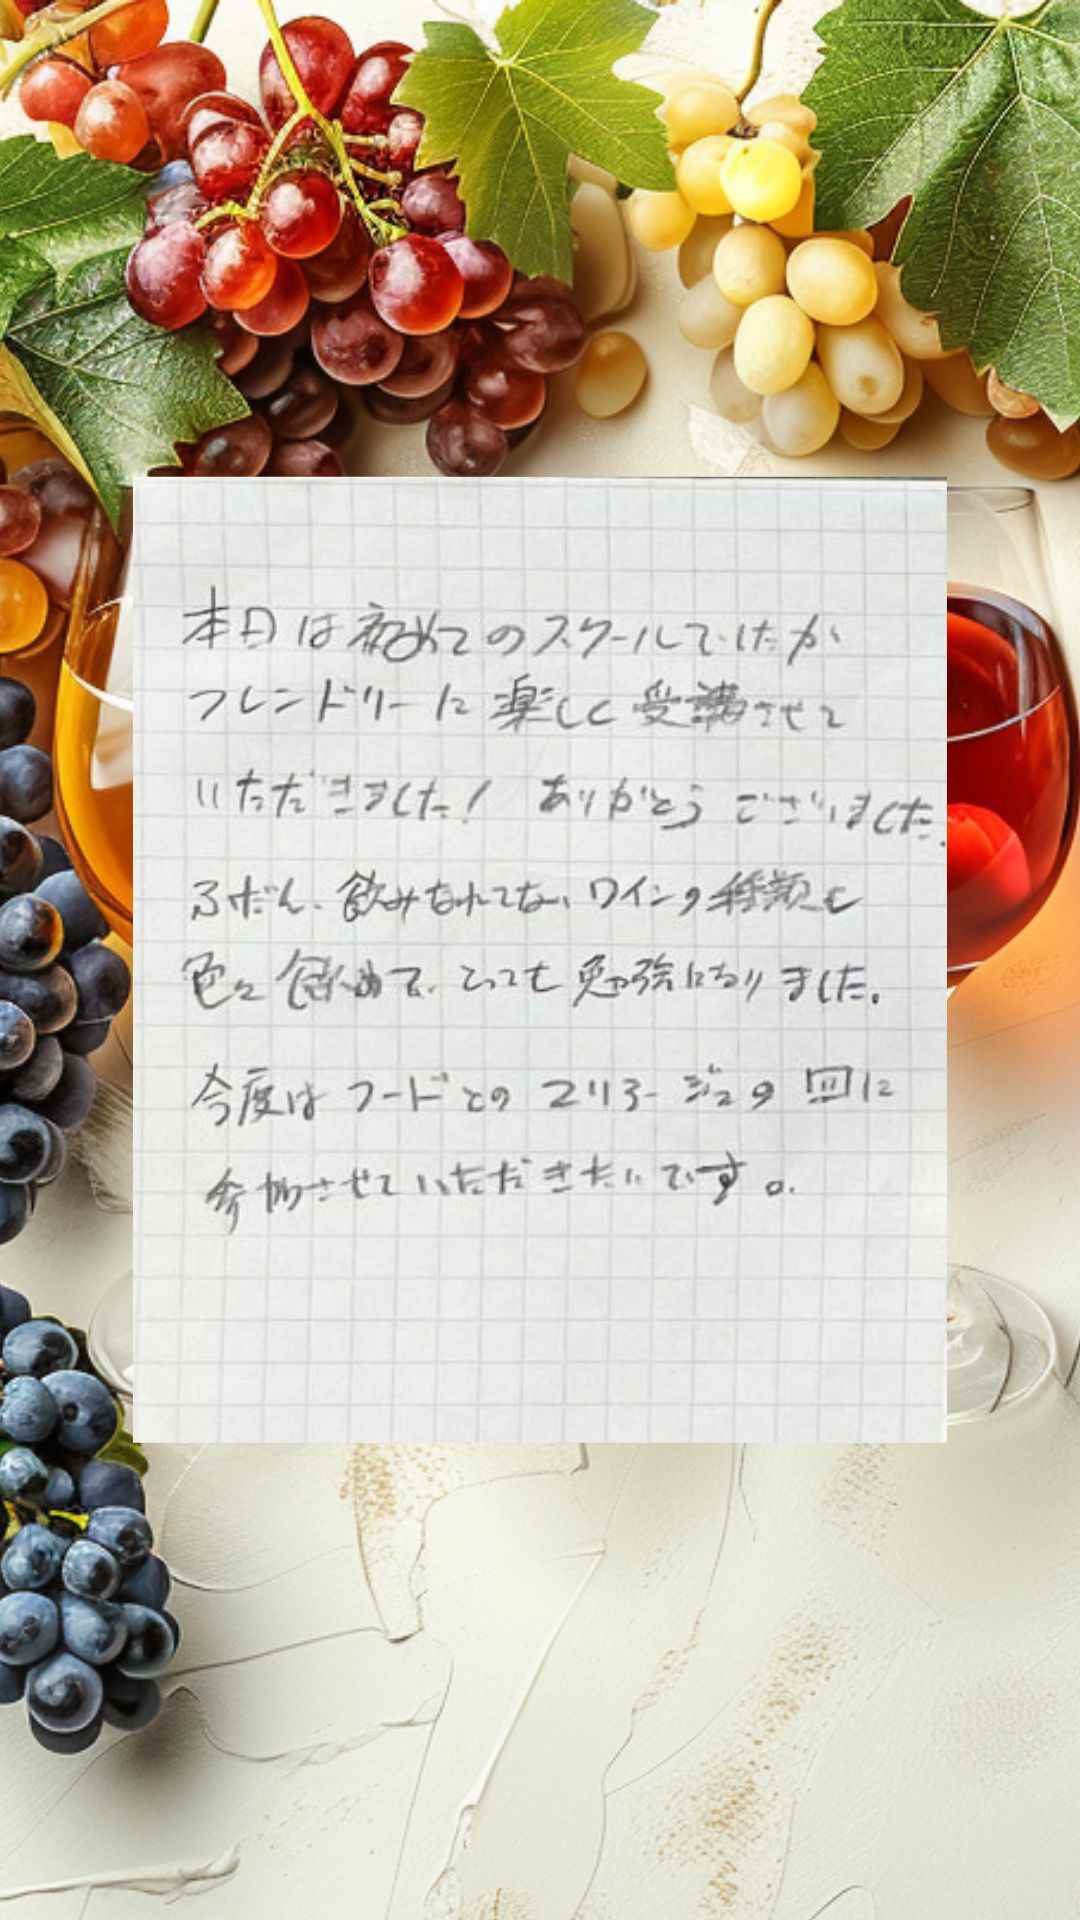 本日は初めてのスクールでしたが
フレンドリーに楽しく受講させて
いただきました! ありがとうございました.
ふだん、飲みなれてない ワインの種類も
色々飲めて、とっても勉強になりました。
今度はフードとのマリアージュの回に
参加させていただきたいです。